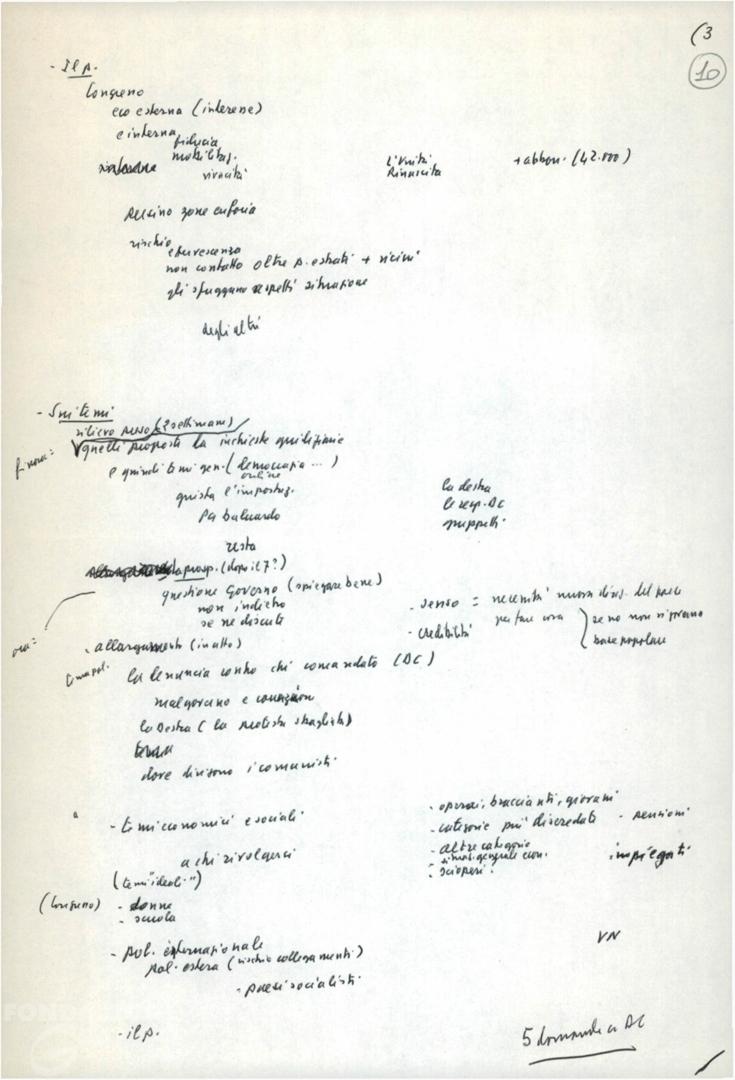 (3
10
- Il p.
Congresso
eco esterna (interesse)
e interna
fiducia
mobilitaz.
vivacità
L'Unità
Rinascita
+ abbon. (42.000)
persino zone euforia
rischio
effervescenza
non contatto oltre p. estratti + vicini
gli sfuggano aspetti situazione
degli altri
- Sui temi
rilievo preso (2 settimane)
finora:
quelli proposti la
e quindi temi gen. (democrazia ...)
ordine
giusta l'impostaz.
Pa baluardo
la destra
le resp. DC
gruppetti
resta
la prosp. (dopo il 7?)
questione Governo (spiegare bene)
non indietro
se ne discute
- senso = necessità nuova direz. del paese
- credibilità
per fare cosa
se no non
base popolare
ora:
- allargamento (in atto)
temi pol.
la denuncia contro chi comandato (DC)
malgoverno e corruzione
la Destra (la protesta sbagliata)
dove dirigono i comunisti
- temi economici e sociali
- operai, braccianti, giovani
- categorie più diseredate - pensioni
- altre categorie
impiegati
- situaz. generale econ.
- scioperi
a chi rivolgerci
(temi "ideali")
(Congresso)
- donne
- scuola
- pol. internazionale
pol. estera (rischio collegamenti)
VN
- paesi socialisti
- il p.
5 domande a DC